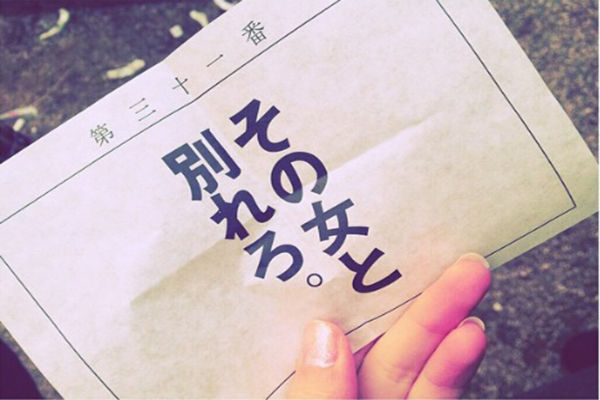 第三十一番
その女と
別れろ。